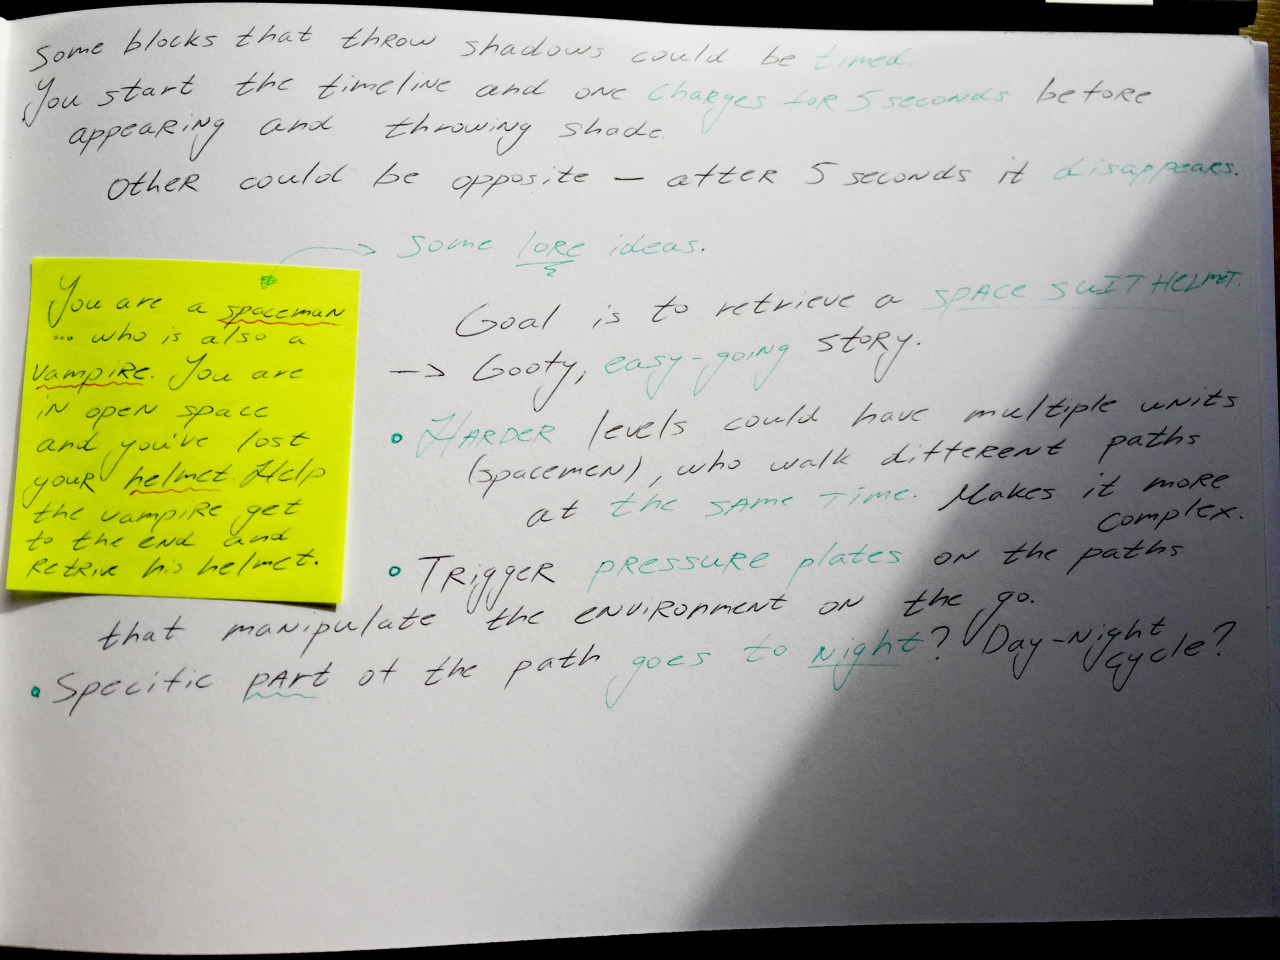 Some blocks that throw shadows could be timed.
You start the timeline and one charges for 5 seconds before
appearing and throwing shade.
Other could be opposite – after 5 seconds it disappears.
Some lore ideas.
You are a spaceman
... who is also a
vampire. You are
in open space
and you've lost
your helmet. Help
the vampire get
to the end and
retrive his helmet.
Goal is to retrieve a SPACE SUIT HELMET.
-> Goofy, easy-going story.
• HARDER levels could have multiple units
(spacemen), who walk different paths
at the same time. Makes it more
complex.
• Trigger pressure plates on the paths
that manipulate the environment on the go.
• Specific part of the path goes to night? Day-night
cycle?